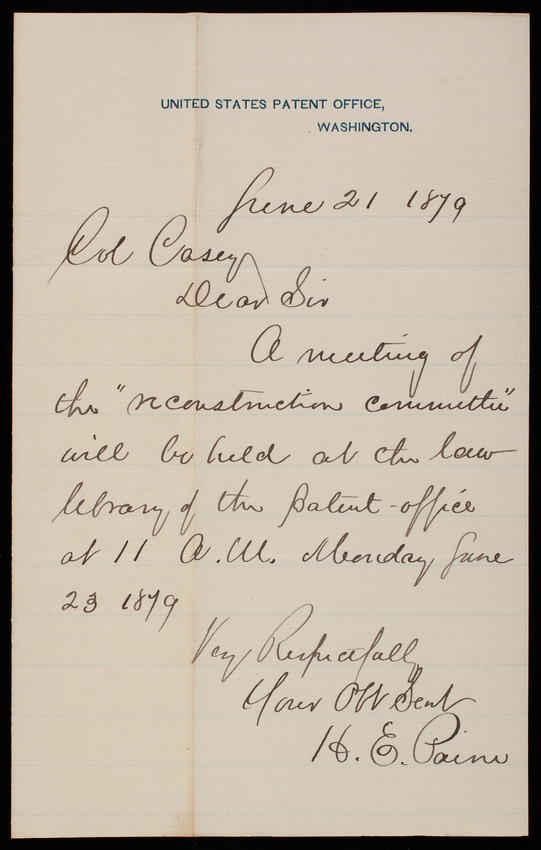 UNITED STATES PATENT OFFICE,
WASHINGTON.
June 21 1879
Col Casey
Dear Sir
A meeting of
the "reconstruction committee"
will be held at the law
library of the Patent-office
at 11 A.M. Monday June
23 1879
Very Respectfully
Your Obt Servt
H. E. Paine